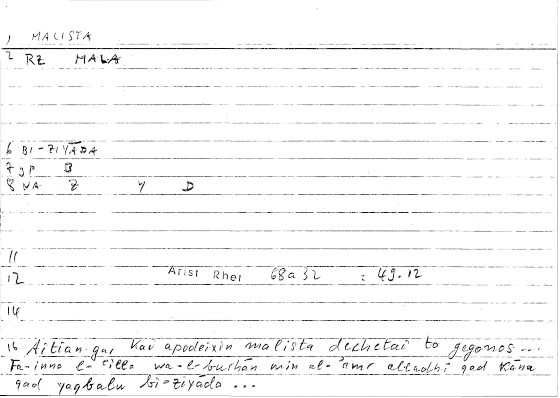 1 MALISTA
2 RZ MALA
6 BI-ZIYĀDA
7 gp B
8 NA Z Y D
11
12 Arist Rhet 68a32 : 49.12
14
16 Aitian gar kai apodeixin malista dechetai to gegonos ...
Fa-inna l-ʿilla wa-l-burhān min al-ʾamr alladhī qad kāna
qad yaqbalu bi-ziyāda ...